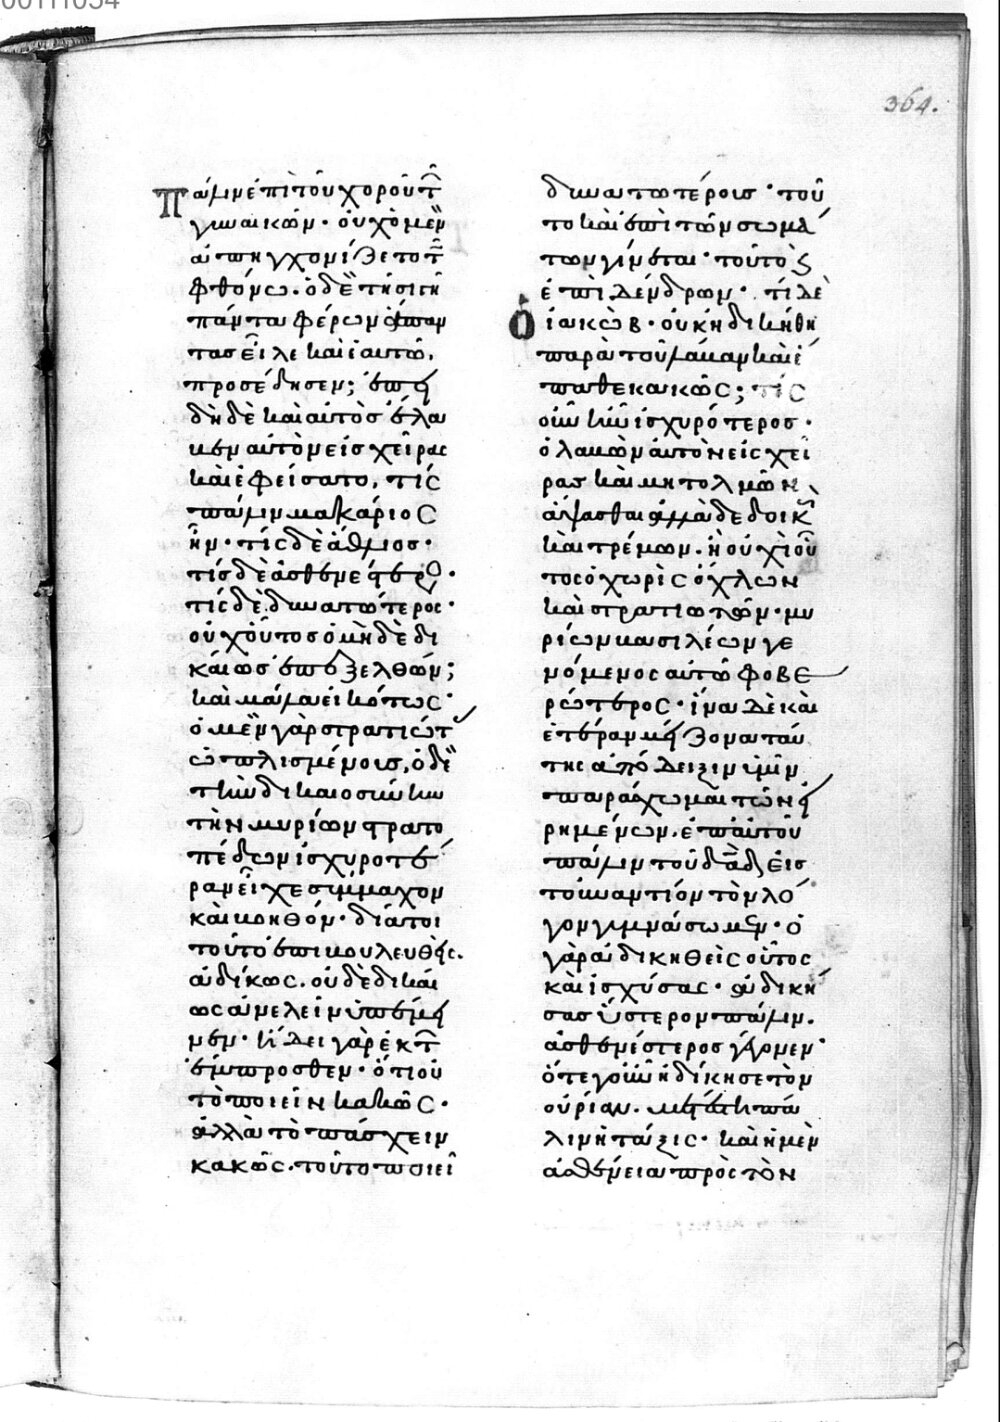 00111054
364.
Πάλιν ἐπὶ τοῦ χοροῦ τῶν
γυναικῶν · οὐχ ὁ μὲν
ἀπηγχονίζετο τῷ
φθόνω · ὁ δὲ τῇ σιγῇ
πάντα φέρων ἅπαν
τας εἷλε καὶ ἑαυτῶ,
προσέδησεν; ἐπεὶ
δὴ δὲ καὶ αὐτὸς ἔλα
βεν αὐτὸν εἰς χεῖρας
καὶ ἐφείσατο, τίς
πάλιν μακάριος
ἦν · τίς δὲ ἄθλιος ·
τίς δὲ ἀσθενέστερος ·
τίς δὲ δυνατώτερος ·
οὐχ οὗτος ὁ μηδὲ δι
καίως ἐπεξελθών;
καὶ μάλα εἰκότως ·
ὁ μὲν γὰρ στρατιώτ
ὡπλισμένοις, ὁ δὲ
τὴν δικαιοσύνην
τὴν μυρίων στρατο
πέδων ἰσχυροτέ
ραν εἶχε σύμμαχον
καὶ βοηθόν · διά τοι
τοῦτο ἐπιβουλευθεὶς
ἀδίκως · οὐδὲ δικαί
ως ἀνελεῖν ὑπέμει
νεν · ᾔδει γὰρ ἐκ τῶν
ἔμπροσθεν · ὅτι οὐ
τὸ ποιεῖν κακῶς ·
ἀλλὰ τὸ πάσχειν
κακῶς · τοῦτο ποιεῖ
δυνατωτέροις · τοῦ
το καὶ ἐπὶ τῶν σωμά
των γίνεται · τοῦτο καὶ
ἐπὶ δένδρων · τί δὲ
ὁ Ἰακώβ · οὐκ ἠδικήθη
παρὰ τοῦ Λάβαν καὶ ἔ
παθε κακῶς; τίς
οὖν ἦν ἰσχυρότερος ·
ὁ λαβὼν αὐτὸν εἰς χεῖ
ρας καὶ μὴ τολμῶν
ἅψασθαι ἀλλὰ δεδοικὼς
καὶ τρέμων · ἢ οὐχὶ οὗ
τος ὁ χωρὶς ὅπλων
καὶ στρατιωτῶν · μυ
ρίων βασιλέων γε
νόμενος αὐτῶ φοβε
ρώτερος · ἵνα δὲ καὶ
ἑτέραν μείζονα ταύ
της ἀπόδειξιν ὑμῖν
παράσχωμαι τῶν εἰ
ρημένων · ἐπ' αὐτοῦ
πάλιν τοῦ δαδ εἰς
τὸ ἐναντίον τὸν λό
γον γυμνάσωμεν · ὁ
γὰρ ἀδικηθεὶς οὗτος
καὶ ἰσχύσας · ἀδική
σας ὕστερον πάλιν ·
ἀσθενέστερος γέγονεν ·
ὅτε γοῦν ἠδίκησε τὸν
Οὐρίαν · μετέστη πά
λιν ἡ τάξις · καὶ ἡ μὲν
ἀσθένεια πρὸς τὸν